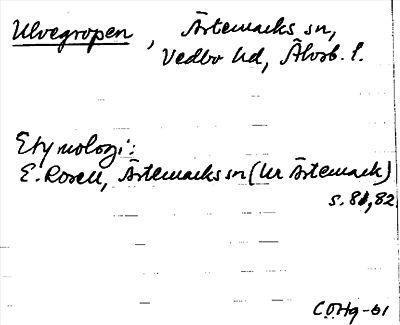 Ulvegropen, Ärtemarks sn,
Vedbo hd, Älvsb. l.
Etymologi:
E. Rosell, Ärtemarks sn (ur Ärtemark)
s. 81, 82